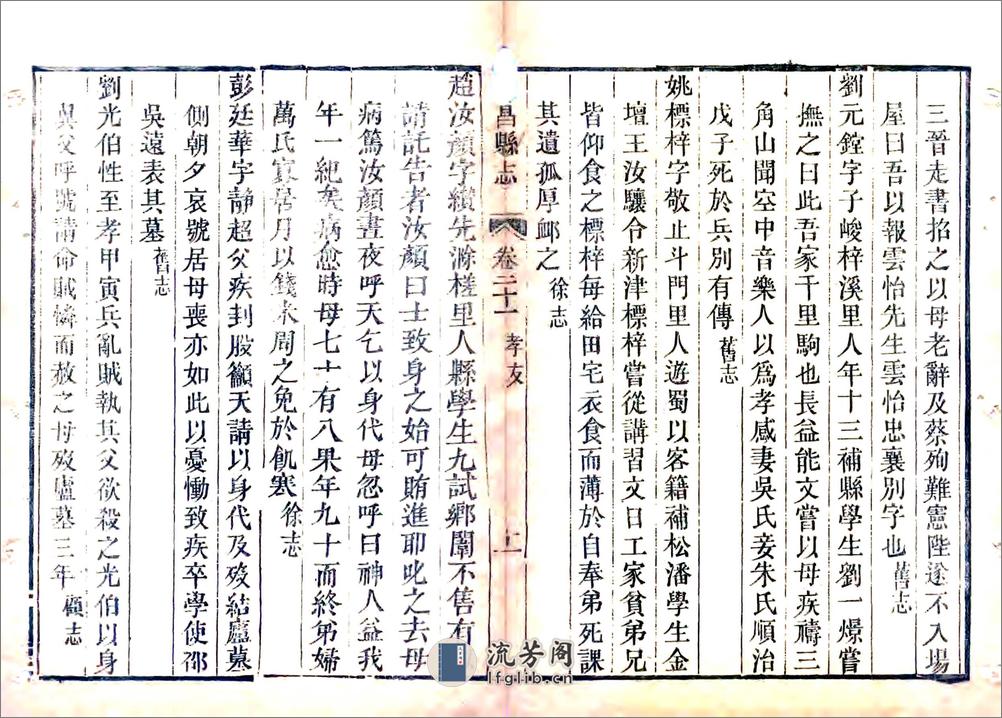 三晉走書招之以母老辭及蔡殉難憲陛遂不入場
屋曰吾以報雲怡先生雲怡忠襄別字也 舊志
劉元鏜字子峻梓溪里人年十三補縣學生劉一燝嘗
撫之曰此吾家千里駒也長益能文嘗以母疾禱三
角山聞空中音樂人以為孝感妻吳氏妾朱氏順治
戊子死於兵別有傳 舊志
姚標梓字敬止斗門里人遊蜀以客籍補松潘學生金
壇王汝驤令新津標梓嘗從講習文日工家貧弟兄
皆仰食之標梓每給田宅衣食而薄於自奉弟死課
其遺孤厚卹之 徐志
昌縣志 卷二十一 孝友
趙汝顏字纘先滁槎里人縣學生九試鄉闈不售有
請託告者汝顏曰士致身之始可賄進耶叱之去母
病篤汝顏晝夜呼天乞以身代母忽呼曰神人益我
年一紀矣病愈時母七十有八果年九十而終弟婦
萬氏寡居月以錢米周之免於飢寒 徐志
彭廷華字靜超父疾刲股籲天請以身代及歿結廬墓
側朝夕哀號居母喪亦如此以憂慟致疾卒學使邵
吳遠表其墓 舊志
劉光伯性至孝甲寅兵亂賊執其父欲殺之光伯以身
異父呼號請命賊憐而赦之母歿廬墓三年 顧志
流芳閣
lfglib.cn